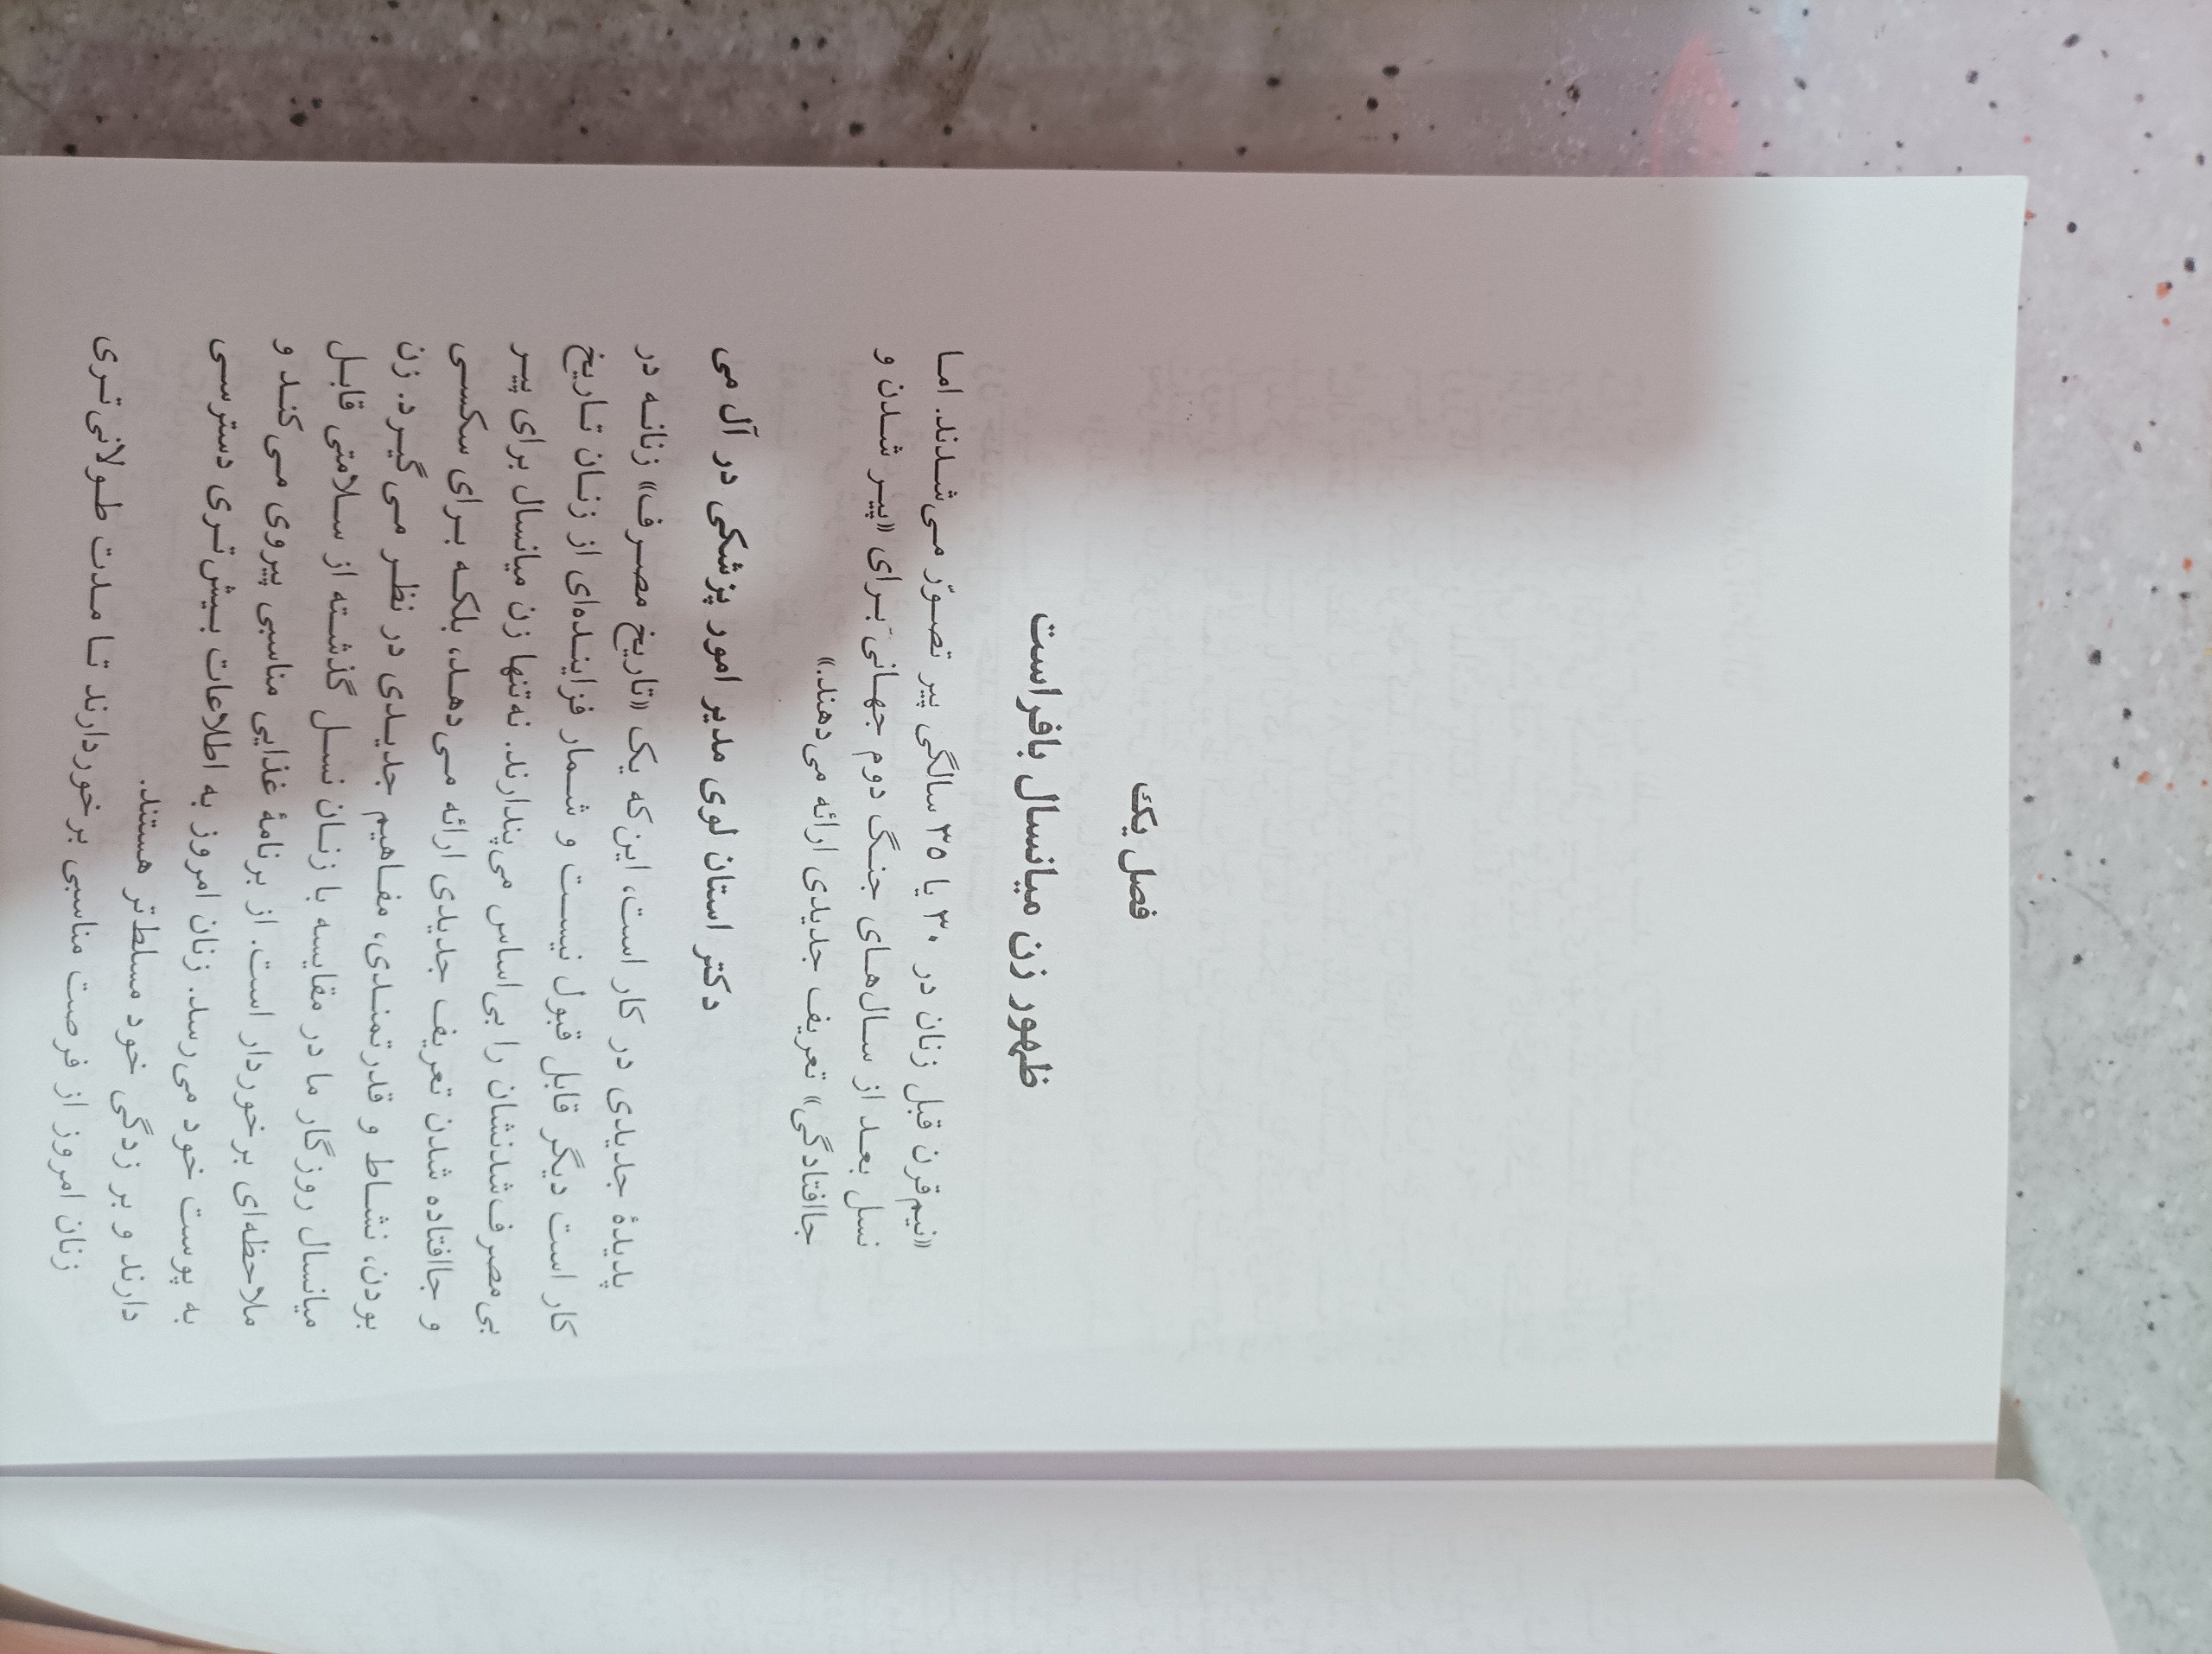 فصل یک
ظهور زن میانسال بافراست
«نیم‌قرن قبل زنان در ۳۰ یا ۳۵ سالگی پیر تصوّر می‌شدند. اما
نسل بعد از سال‌های جنگ دوم جهانی َبرای «پیر شدن و
جاافتادگی» تعریف جدیدی ارائه می‌دهند.»
دکتر استان لوی مدیر امور پزشکی در آل می
پدیدهٔ جدیدی در کار است، این‌که یک «تاریخ مصرف» زنانه در
کار است دیگر قابل قبول نیست و شمار فزاینده‌ای از زنان تاریخ
بی‌مصرف‌شدنشان را بی‌اساس می‌پندارند. نه‌تنها زن میانسال برای پیر
و جاافتاده شدن تعریف جدیدی ارائه می‌دهد، بلکه برای سکسی
بودن، نشاط و قدرتمندی، مفاهیم جدیدی در نظر می‌گیرد. زن
میانسال روزگار ما در مقایسه با زنان نسل گذشته از سلامتی قابل
ملاحظه‌ای برخوردار است. از برنامهٔ غذایی مناسبی پیروی می‌کند و
به پوست خود می‌رسد. زنان امروز به اطلاعات بیش‌تری دسترسی
دارند و بر زدگی خود مسلط‌تر هستند.
زنان امروز از فرصت مناسبی برخوردارند تا مدت طولانی‌تری